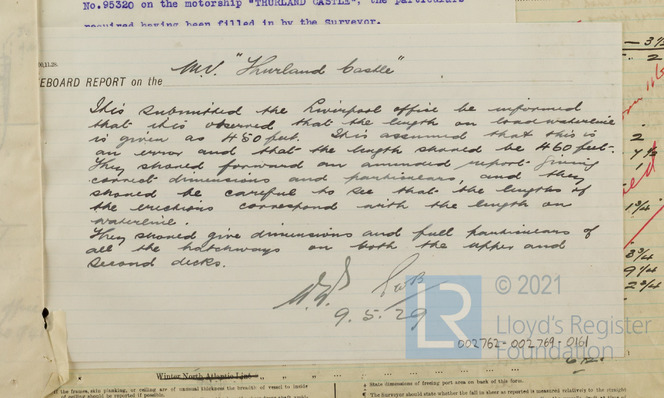 No.95320 on the motorship "THURLAND CASTLE", the particulars
required having been filled in by the Surveyor.
EBOARD REPORT on the M.V. "Thurland Castle"
It is submitted the Liverpool office be informed
that it is observed that the length on load waterline
is given as 450 feet. It is assumed that this is
an error and that the length should be 460 feet.
They should forward an amended report giving
correct dimensions and particulars, and they
should be careful to see that the lengths of
the erections correspond with the length on
waterline.
They should give dimensions and full particulars of
all the hatchways on both the upper and
second decks.
9.5.29
LR
© 2021
Lloyd's Register
Foundation
002762-002769-0161
Winter North Atlantic Line
if the frames, skin planking, or ceiling are of unusual thickness the breadth of vessel to inside
of ceiling should be reported if possible.
State dimensions of freeing port area on back of this form.
The Surveyor should state whether the fall in sheer as reported is measured relatively to the straight
2
7½
1
1¾
8¾
9¼
2¾